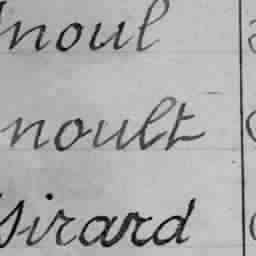 noul
noult
Girard